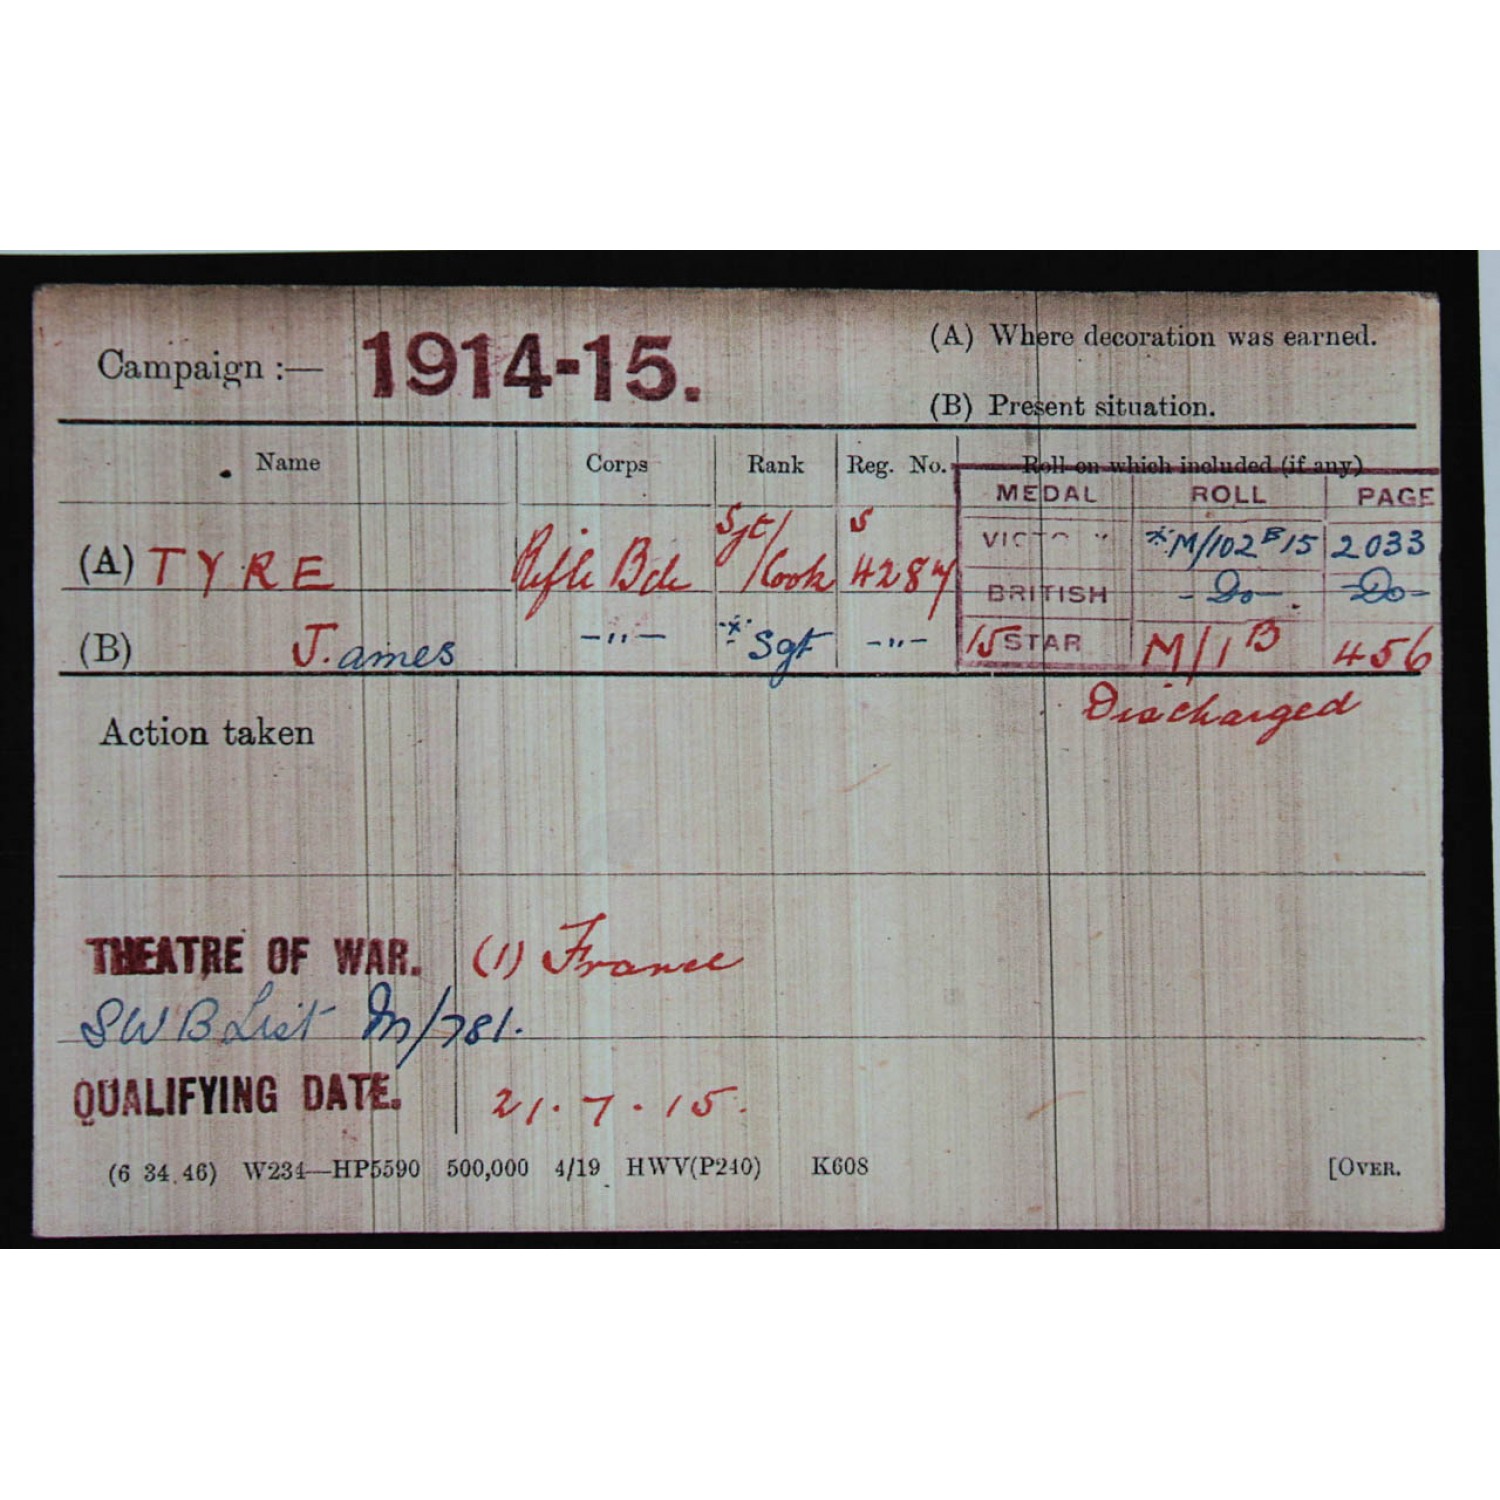 Campaign :— 1914-15.
(A) Where decoration was earned.
(B) Present situation.
Name Corps Rank Reg. No. Roll on which included (if any)
MEDAL ROLL PAGE
(A) TYRE Rifle Bde Sgt/Cook S 4287
VICTORY *M/102B15 2033
BRITISH -Do- -Do-
(B) J.ames -"- * Sgt -"-
15 STAR M/1B 456
Discharged
Action taken
THEATRE OF WAR. (1) France
SWB List M/781.
QUALIFYING DATE. 21.7.15.
(6 34.46) W234—HP5590 500,000 4/19 HWV(P240) K608 [OVER.